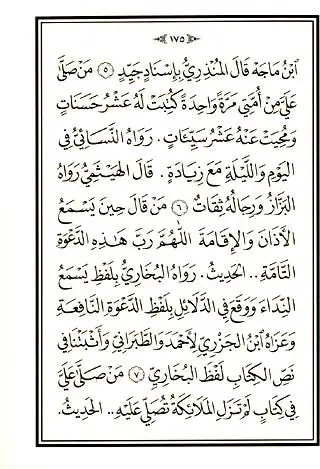 ١٧٥
ابْنُ مَاجَهْ قَالَ المُنْذِرِيُّ بِإِسْنَادٍ جَيِّدٍ ⑤ مَنْ صَلَّى
عَلَيَّ مِنْ أُمَّتِي مَرَّةً وَاحِدَةً كُتِبَتْ لَهُ عَشْرُ حَسَنَاتٍ
وَمُحِيَتْ عَنْهُ عَشْرُ سَيِّئَاتٍ . رَوَاهُ النَّسَائِيُّ فِي
اليَوْمِ وَاللَّيْلَةِ مَعَ زِيَادَةٍ . قَالَ الهَيْثَمِيُّ رَوَاهُ
البَزَّارُ وَرِجَالُهُ ثِقَاتٌ ⑥ مَنْ قَالَ حِينَ يَسْمَعُ
الأَذَانَ وَالإِقَامَةَ اللَّهُمَّ رَبَّ هَذِهِ الدَّعْوَةِ
التَّامَّةِ .. الحَدِيثَ . رَوَاهُ البُخَارِيُّ بِلَفْظِ يَسْمَعُ
النِّدَاءَ وَوَقَعَ فِي الدَّلَائِلِ بِلَفْظِ الدَّعْوَةِ النَّافِعَةِ
وَعَزَاهُ ابْنُ الجَزْرِي لِأَحْمَدَ وَالطَّبَرَانِي وَأَثْبَتْنَا فِي
نَصِّ الكِتَابِ لَفْظَ البُخَارِيِّ ⑦ مَنْ صَلَّى عَلَيَّ
فِي كِتَابٍ لَمْ تَزَلِ المَلَائِكَةُ تُصَلِّي عَلَيْهِ .. الحَدِيثُ .